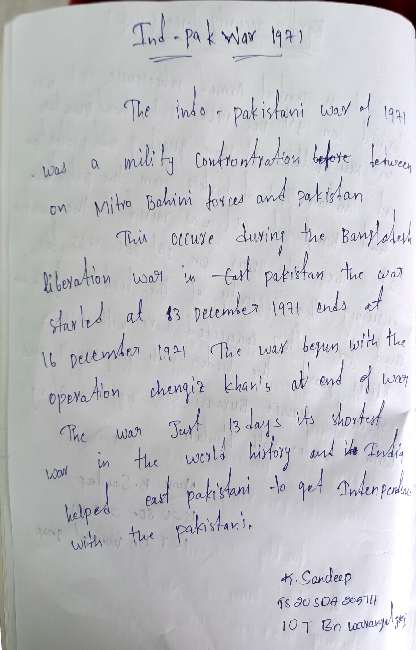 Ind - pak War 1971
The indo - pakistani war of 1971
was a mility Controntration before between
on Mitro Bahini forces and pakistan
This occure during the Bangladesh
liberation war in East pakistan the war
started at 13 December 1971 ends at
16 December 1971 The war begun with the
operation chengiz khan's at end of war
The war Just 13 days its shortest
war in the world history and India
helped east pakistani to get Indenpendence
with the pakistani.
K. Sandeep
10 T Bn Warangal